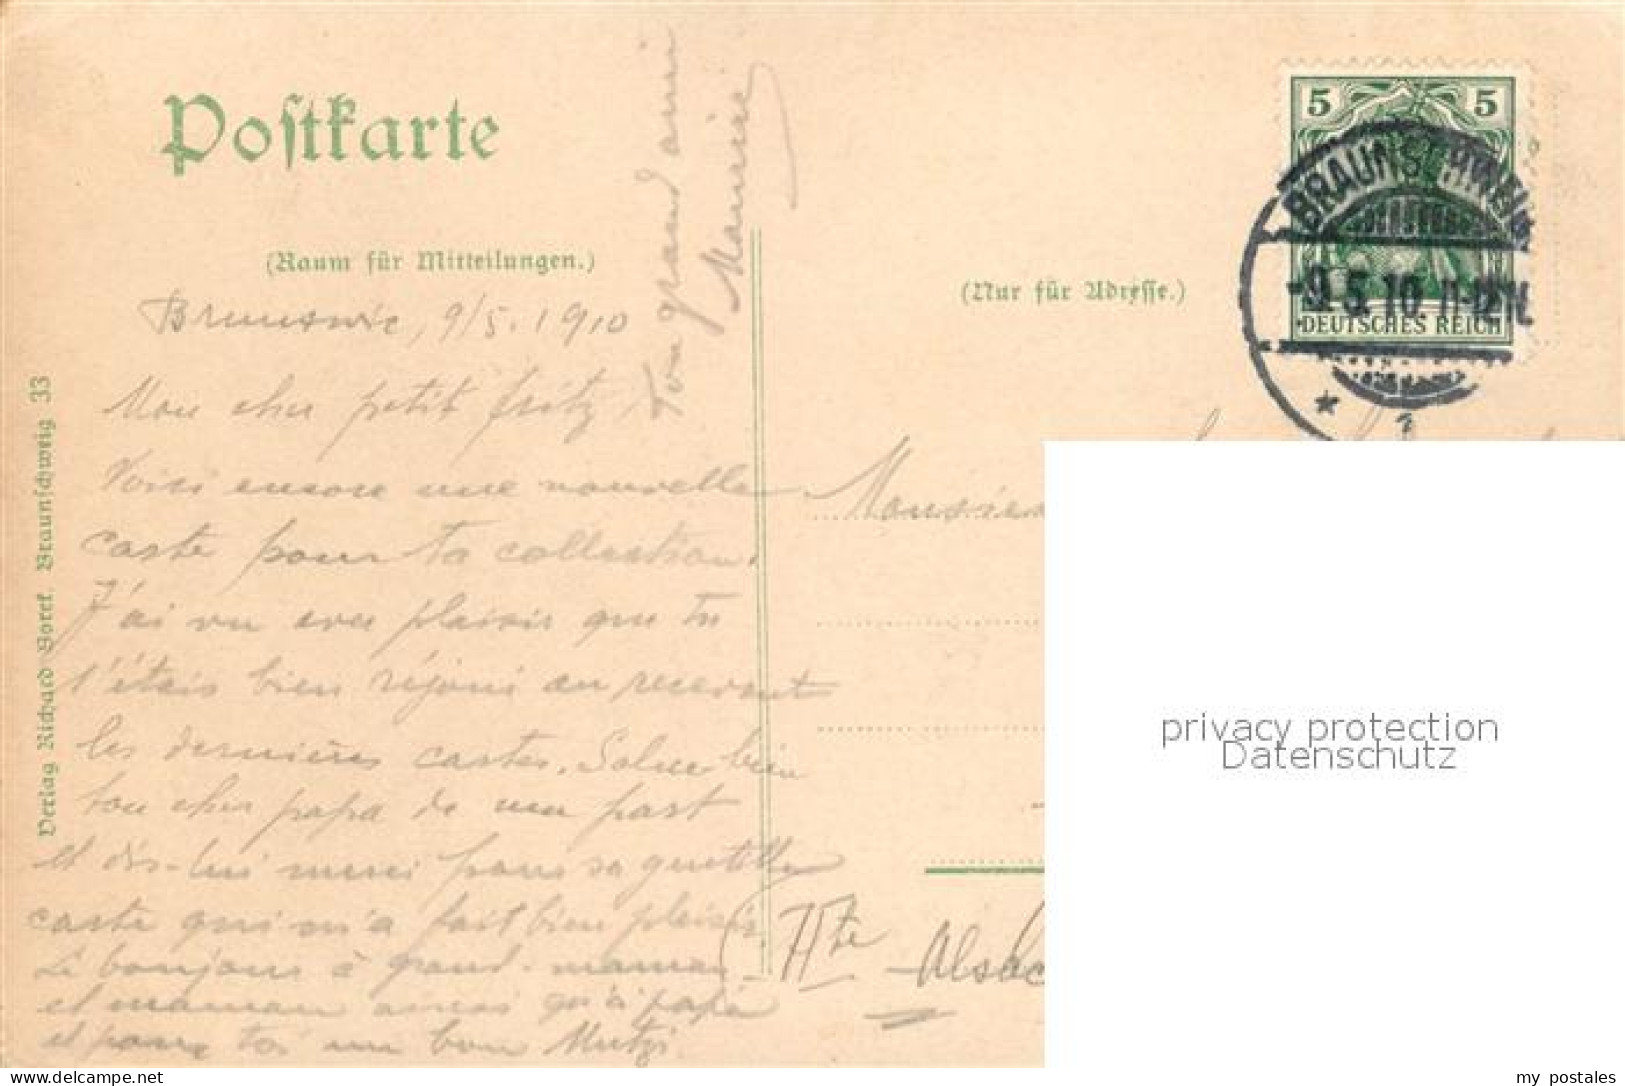 Postkarte
(Raum für Mitteilungen.)
(Nur für Adresse.)
5 5
BRAUNSCHWEIG
-9.5.10. 11-12N.
DEUTSCHES REICH
* 1
Brunswic, 9/5. 1910
Mon cher petit Fritz
Voici encore une nouvelle
carte pour ta collection.
J'ai vu avec plaisir que tu
t'étais bien réjoui en recevant
les dernières cartes. Salue bien
ton cher papa de ma part
et dis-lui merci pour sa gentille
carte qui m'a fait bien plaisir.
Le bonjour à grand-maman
et maman ainsi qu'à papa
et pour toi un bon Mutzi
Ton grand ami
Maurice
Monsieur
Hte Alsac
Verlag Richard Borek, Braunschweig 33
privacy protection
Datenschutz
my postales